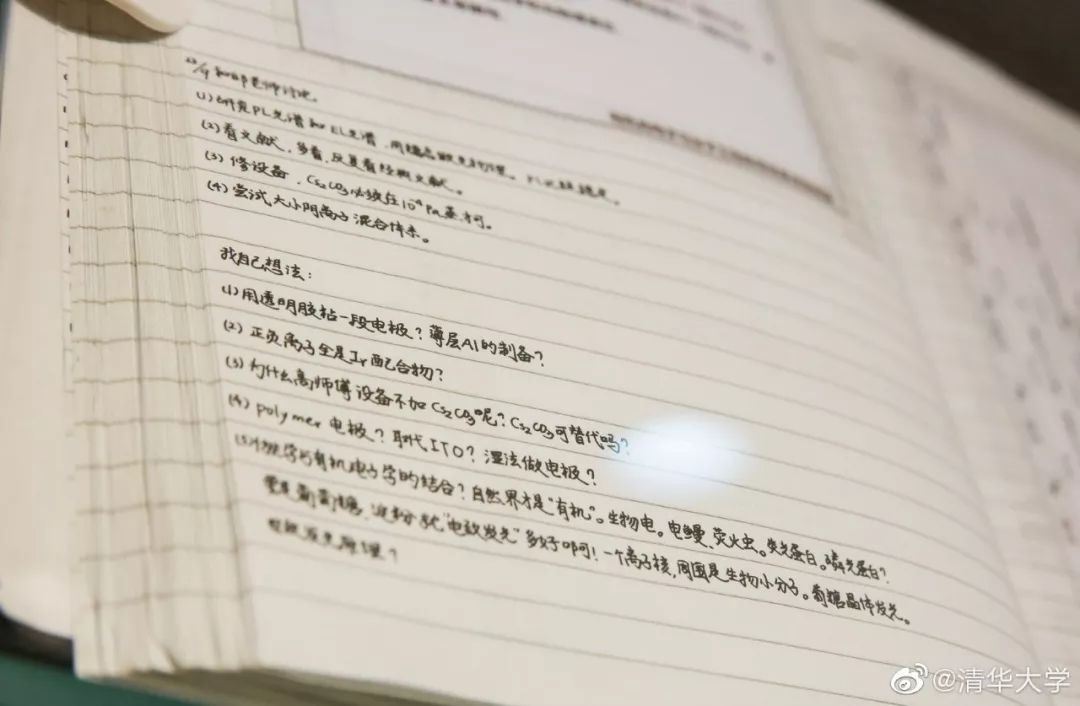 (1)研究PL光谱和EL光谱,
(2)看文献,多看,反复看经典文献。
(3)修设备,Cs₂CO₃必须在10⁻⁴Pa蒸才可。
(4)尝试大小阴离子混合体系。
我自己想法:
(1)用透明胶粘一段电极?薄层Al的制备?
(2)正负离子全是Ir配合物?
(3)为什么高师傅设备不加Cs₂CO₃呢?Cs₂CO₃可替代吗?
(4)polymer电极?取代ITO?湿法做电极?
(5)学与有机电子学的结合?自然界才是“有机”。生物电。电鳗、荧火虫。荧光蛋白。磷光蛋白?
要是葡萄糖、淀粉就“电致发光”多好啊!一个离子核,周围是生物小分子。葡糖晶体发光。
发光原理?
@清华大学